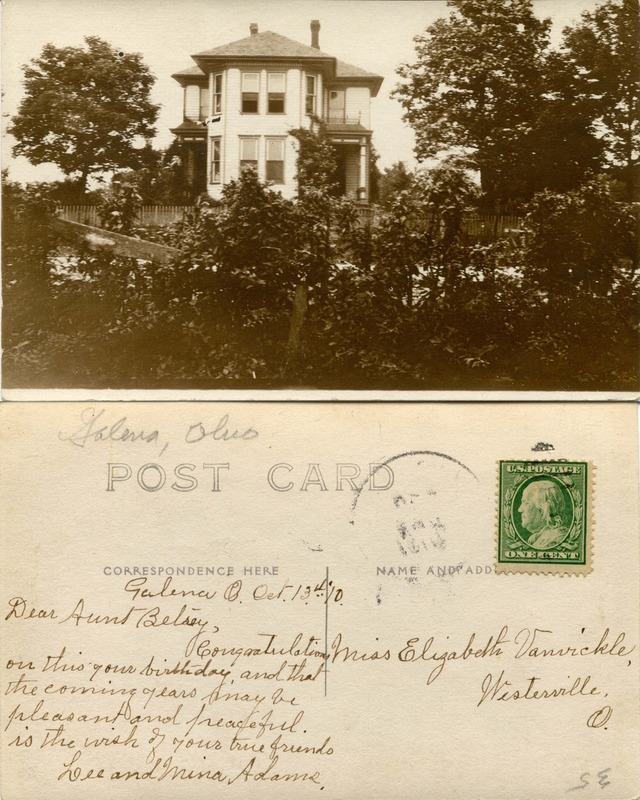 Galena, Ohio
POST CARD
U.S. POSTAGE
ONE CENT
CORRESPONDENCE HERE
NAME AND ADD
Galena O. Oct. 13th '10.
Dear Aunt Betsey,
Congratulations
on this your birthday, and that
the coming years may be
pleasant and peaceful.
is the wish of your true friends
Lee and Mina Adams.
Miss Elizabeth Vanvickle,
Westerville,
O.
35